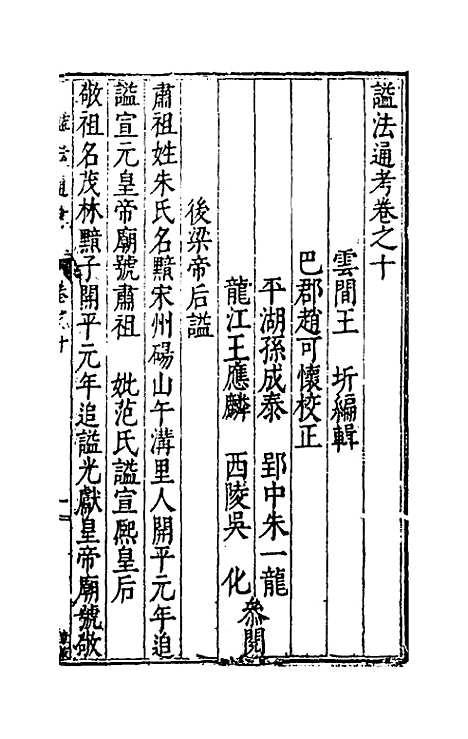 謚法通考卷之十
雲間王　圻編輯
巴郡趙可懷校正
平湖孫成泰　郢中朱一龍
龍江王應麟　西陵吳　化
參閱
後梁帝后謚
肅祖姓朱氏名黯宋州碭山午溝里人開平元年追
謚宣元皇帝廟號肅祖　妣范氏謚宣熙皇后
敬祖名茂林黯子開平元年追謚光獻皇帝廟號敬